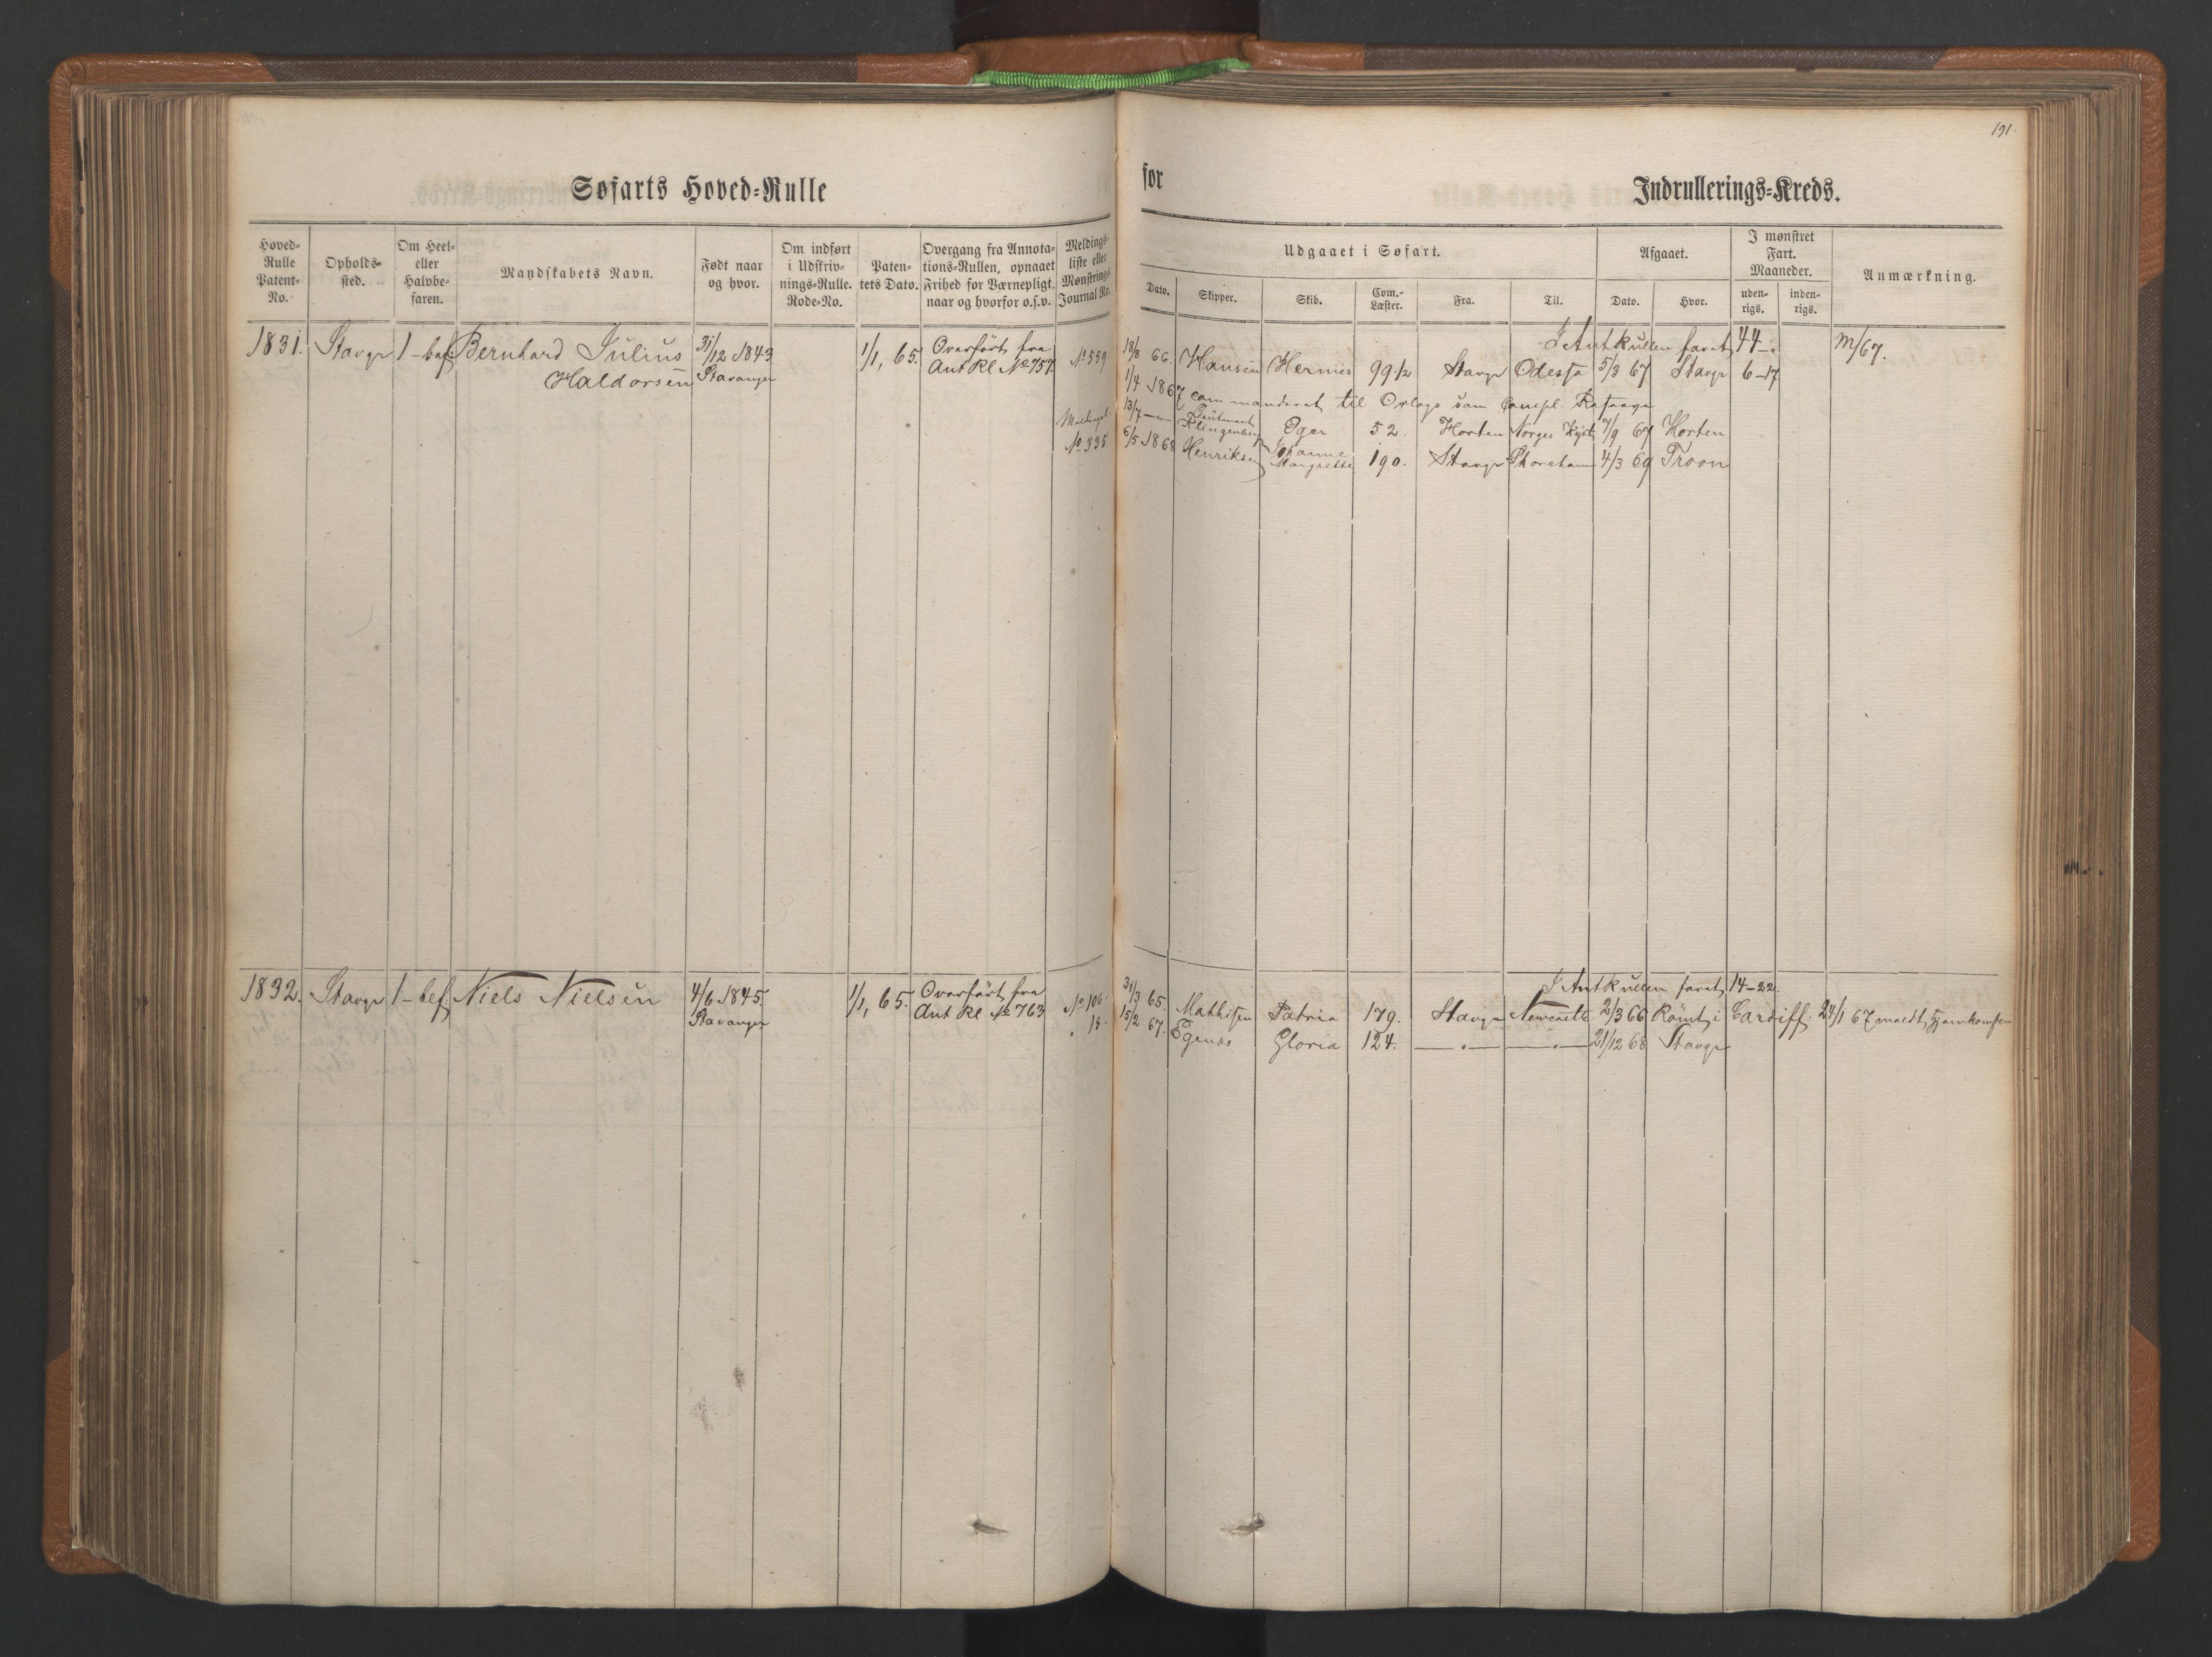 191.
Søfarts Hoved-Rulle
for
Indrullerings-Kreds.
Hoved-Rulle Patent-No.
Opholds-sted.
Om Heel- eller Halvbe-faren.
Mandskabets Navn.
Født naar og hvor.
Om indført i Udskriv-nings-Rulle. Rode-No.
Paten-tets Dato.
Overgang fra Annota-tions-Rullen, opnaaet Frihed for Værnepligt, naar og hvorfor o.s.v.
Meldings-liste eller Mønstrings-Journal No.
Udgaaet i Søfart.
Dato.
Skipper.
Skib.
Com.-Læster.
Fra.
Til.
Afgaaet.
Dato.
Hvor.
I mønstret Fart. Maaneder.
uden-rigs.
inden-rigs.
Anmærkning.
1831. Stavgr 1-bef. Bernhard Julius 31/12 1843 1/1, 65. Overført fra
Haldorsen Stavanger Ant Rl No 757 No 559
I Antkullen faret 44-" M/67.
13/8 66. Hansen Hermes 99 1/2 Stavgr Odessa 5/3 67 Stavgr 6-17
1/4 1867 commanderet til Orlogs som Compl.
13/7 — Lieutenant Klingenberg Oger 52 Horten Norges Kyst 7/9 67 Horten
No 335. 6/5 1868 Henriksen Johanne Margrethe 190. Stavgr Shoreham 4/3 69 Troon
1832. Stavgr 1-bef. Niels Nielsen 4/6 1845. 1/1, 65. Overført fra
Stavanger Ant Rl No 763
I Antkullen faret 14-22.
No 106. 31/3 65. Mathisen Patria 179. Stavgr Newcastle 2/3 66 Römt i Cardiff. 24/1 67 meldt hjemkomsen
" 18. 15/2 67. Egenæs Gloria 124. —"— —"— 21/12 68 Stavgr